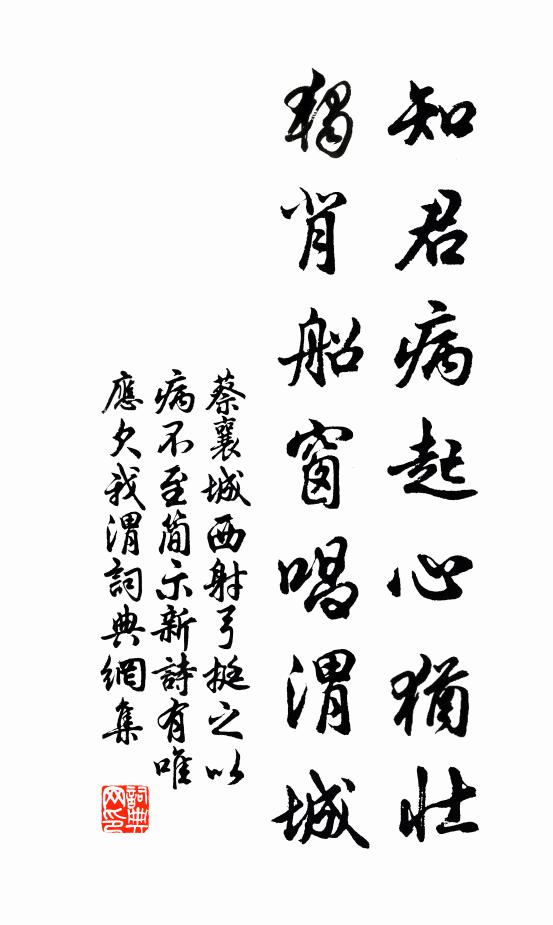 知君病起心猶壯
獨背船窗唱渭城
蔡襄城西射弓挺之以
病不至簡示新詩有唯
應欠我渭詞典網集
詞典网印